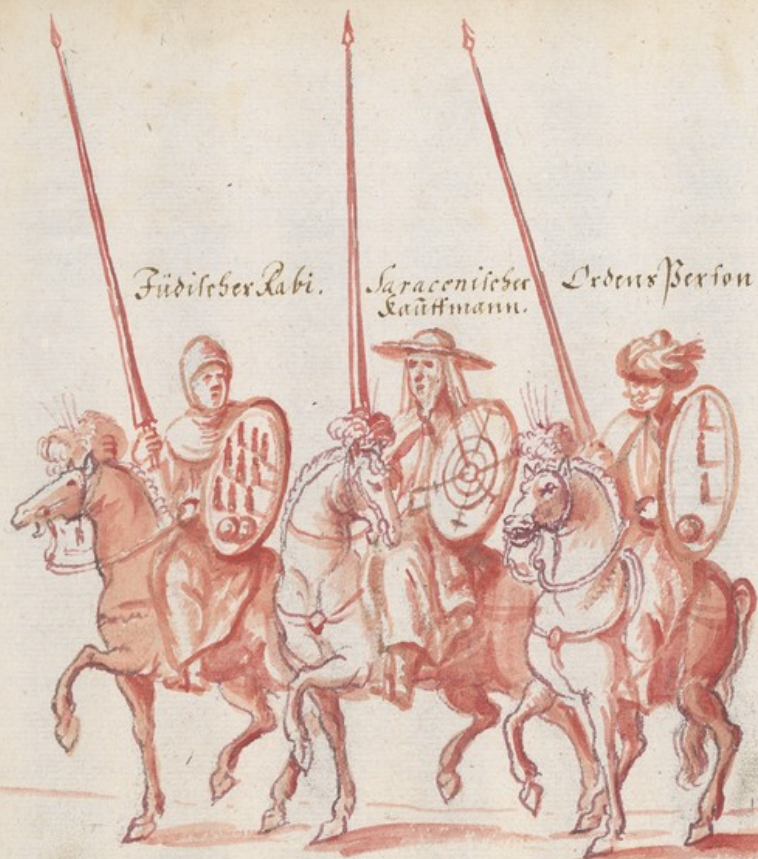 Jüdischer Rabi.
Saracenischer
Kauffmann.
Ordens Person